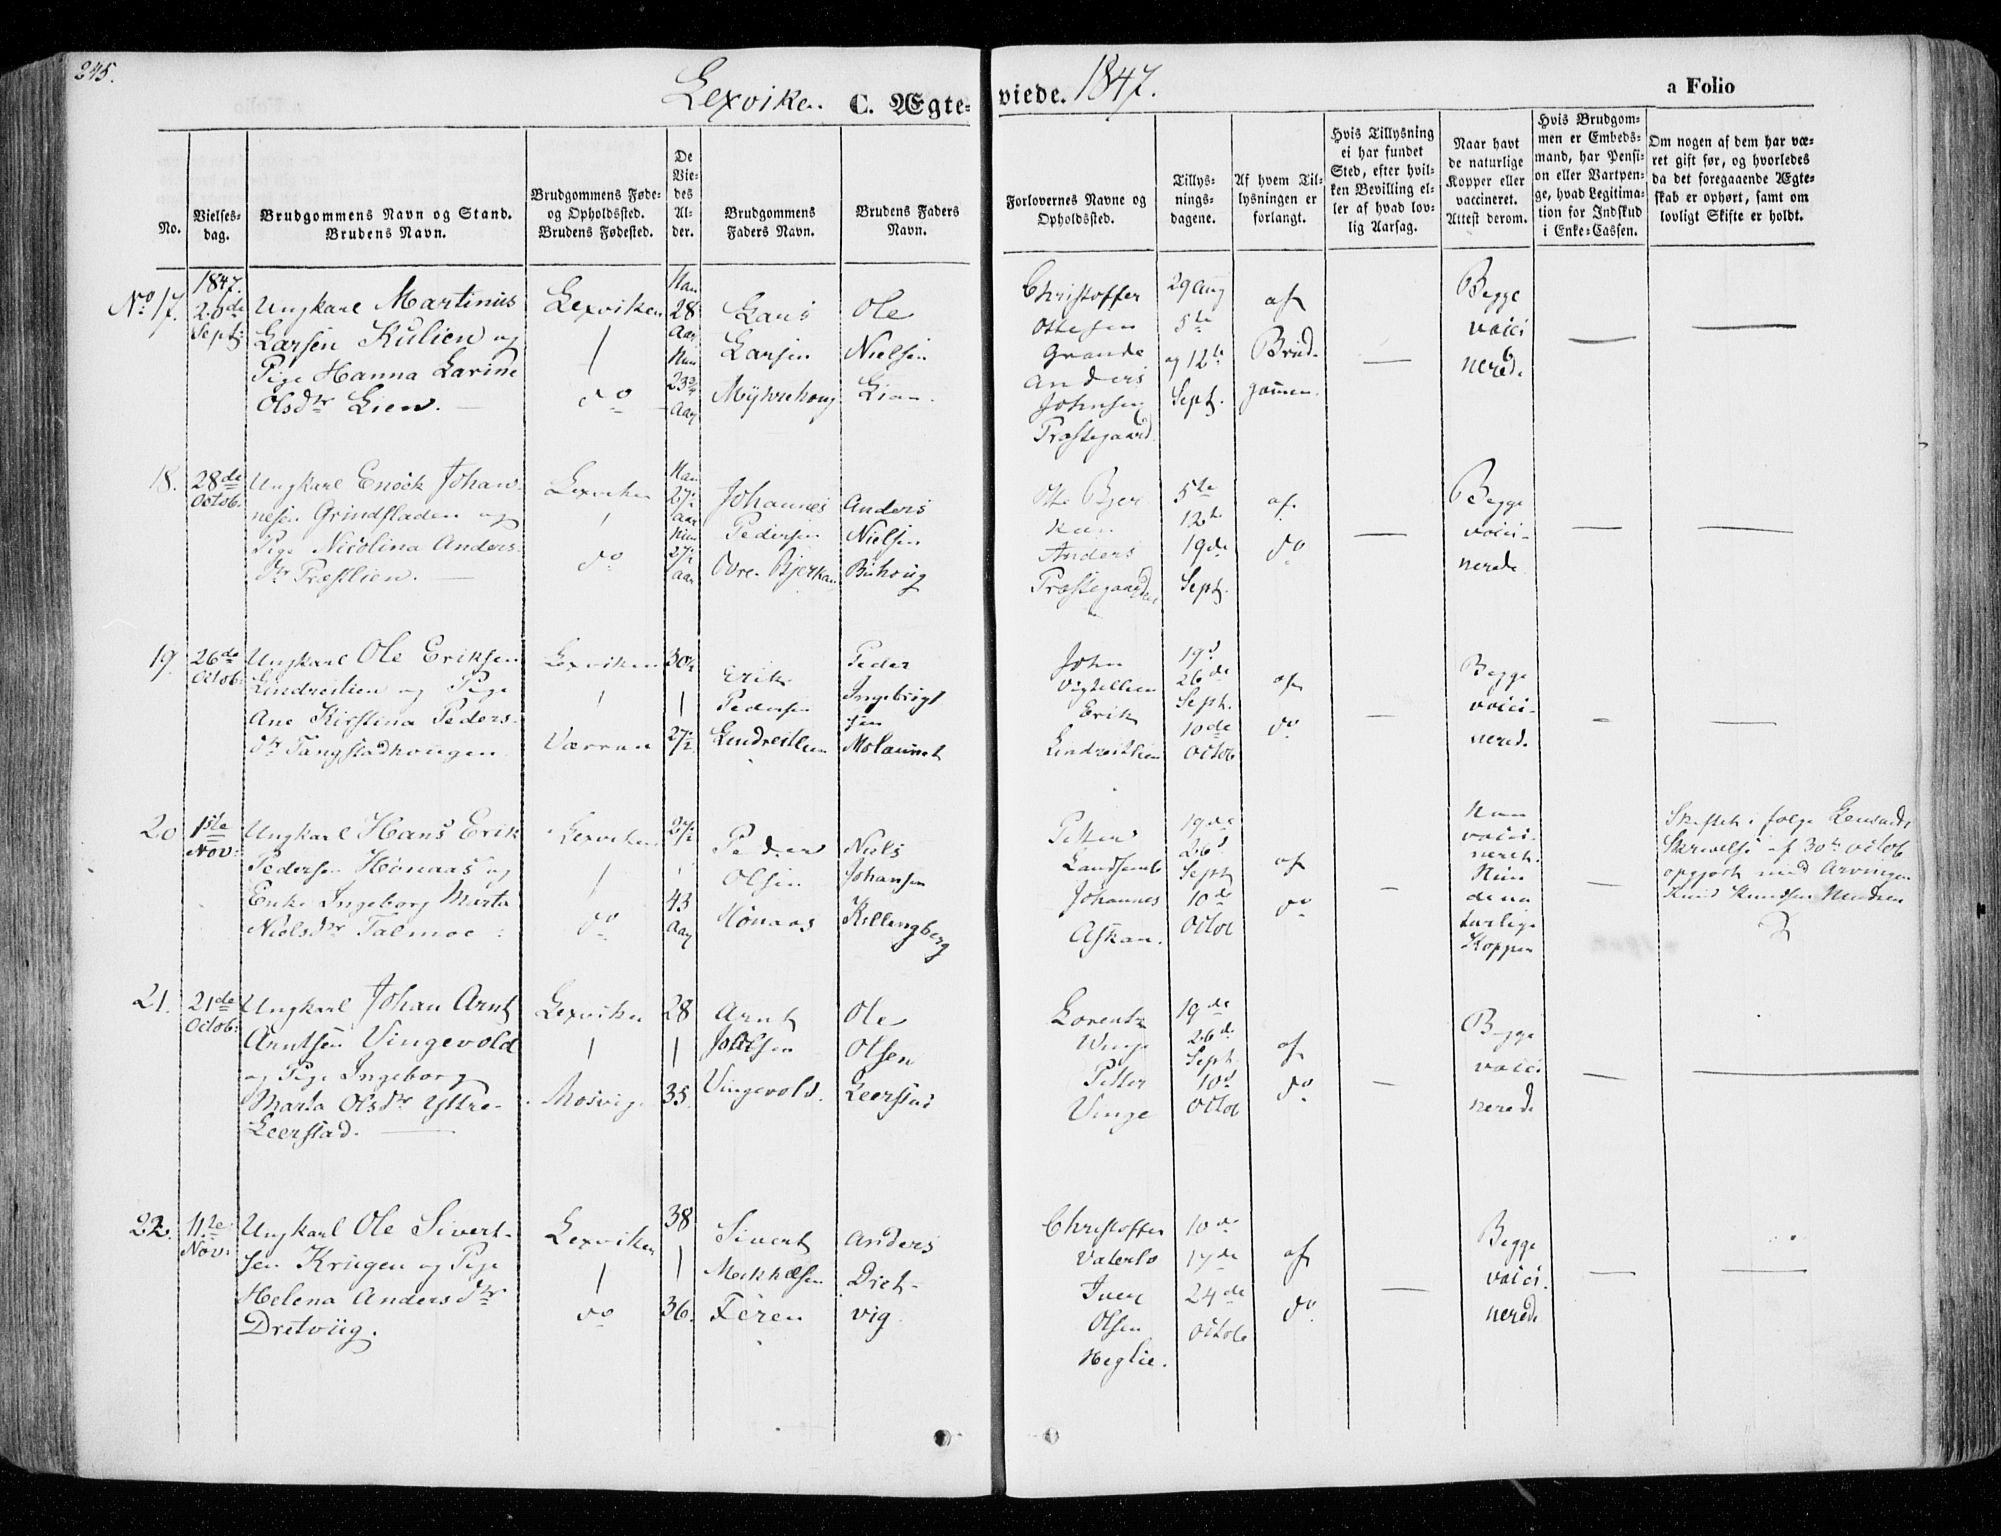 245.
Lexviken C. Ægte= viede. 1847. a Folio
No.
Vielses-
dag.
Brudgommens Navn og Stand.
Brudens Navn.
Brudgommens Føde-
og Opholdssted.
Brudens Fødested.
De
Vie-
des
Al-
der.
Brudgommens
Faders Navn.
Brudens Faders
Navn.
Forlovernes Navne og
Opholdssted.
Tillys-
nings-
dagene.
Af hvem Til-
lysningen er
forlangt.
Hvis Tillysning
ei har fundet
Sted, efter hvil-
ken Bevilling el-
ler af hvad lov-
lig Aarsag.
Naar havt
de naturlige
Kopper eller
vaccineret.
Attest derom.
Hvis Brudgom-
men er Embeds-
mand, har Pensi-
on eller Vartpen-
ge, hvad Legitima-
tion for Indskud
i Enke-Cassen.
Om nogen af dem har væ-
ret gift før, og hvorledes
da det foregaaende Ægte-
skab er ophørt, samt om
lovligt Skifte er holdt.
No 17.
1847.
20de
Sept:
Ungkarl Martinus
Larsen Kulien og
Pige Hanna Larine
Olsdtr Lien. —
Lexviken
/
do
Han
28
Aar
Hun
23¾
Aar
Lars
Larsen
Myhrehoug
Ole
Nielsen
Lian.
Christoffer
Ottesen
Grande
Anders
Johnsen
Præstegaard.
29 Aug
5te
og 12te
Sept.
af
Brud-
gommen.
—
Begge
vacci
nerede
—
—
18.
28de
Octob.
Ungkarl Enock Johan-
nesen Grindsladen og
Pige Nicolina Anders-
dtr Præstlien. —
Lexviken
/
do
Han
27½
Aar
Hun
27½
Aar
Johannes
Pedersen
Øvre Bjerkan
Anders
Nielsen
Buhoug
Ole Bjer
kan
Anders
Præstegaarden
5te
12te
19de
Sept.
af
do
—
Begge
vacci-
nerede
—
—
19.
26de
Octob:
Ungkarl Ole Eriksen
Lindreitlien og Pige
Ane Kirstina Peders-
dtr Tangstadhougen
Lexviken
/
Værran
30½
/
27½
Erik
Pedersen
Lindreitlien
Peder
Ingebrigt
sen
Molaunet
John
Erik
Lindreitlien
19d
26de
Sept.
10de
Octob
af
do
—
Begge
vacci-
nerede
—
—
20
1ste
Nov:
Ungkarl Hans Erik
Pedersen Hønaas og
Enke Ingeborg Marta
Nielsdtr Talmoe :
Lexviken
/
do
27½
43
Aar
Peder
Olsen
Hønaas
Niels
Johansen
Killingberg
Petter
Landsemb
Johannes
Askan.
19de
26d
Sept
10de
Octob
af
do
—
Han
vacci-
neret.
Hun
de na
turlige
Kopper
—
Skiftet i følge Lensmds
Skrivelse af 30te Octob
opgjort med Arvingen
Knud Knudsen
21.
21de
Octob:
Ungkarl Johan Arnt
Arntsen Vingevold
og Pige Ingeborg
Marta Olsdtr Yttre-
Leerstad. —
Lexviken
/
Mosvig
28
/
35.
Arnt
Vingevold.
Ole
Olsen
Leerstad
Lorentz
Winge
Petter
Vinge
19de
26de
Sept.
10d
Octob
af
do
—
Begge
vacci
nerede
—
—
22.
11te
Nov:
Ungkarl Ole Sivert-
sen Krugen og Pige
Helena Andersdtr
Dretviig.
Lexviken
/
do
38
/
36.
Sivert
Mekkelsen
Feren
Anders
Dret-
vig
Christoffer
Vaterlo
Iver
Olsen
Heglie.
10de
17de
24de
Octob
af
do
—
Begge
vacci-
nerede
—
—